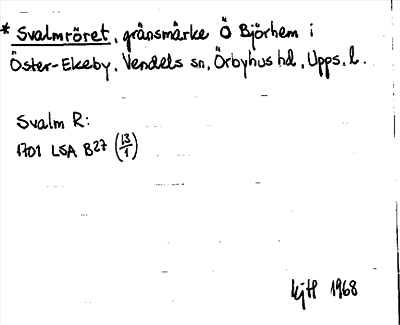 * Svalmröret, gränsmärke Ö Björhem i
Öster-Ekeby, Vendels sn, Örbyhus hd, Upps. l.
Svalm R:
1701 LSA B27 (13/1)
1968